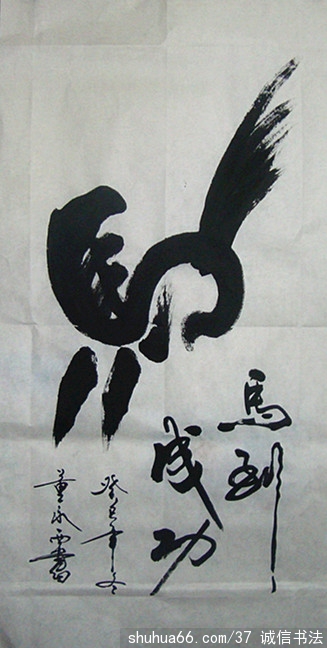 馬
馬到
成功
癸巳年冬
董永西書
shuhua66.com/37 诚信书法